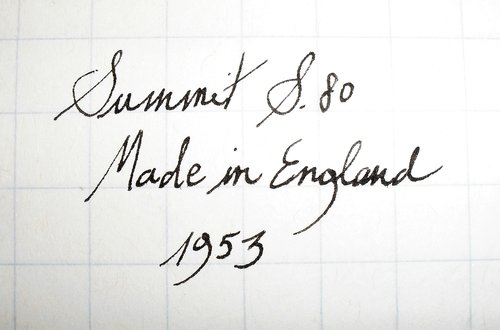 Summit S.80
Made in England
1953